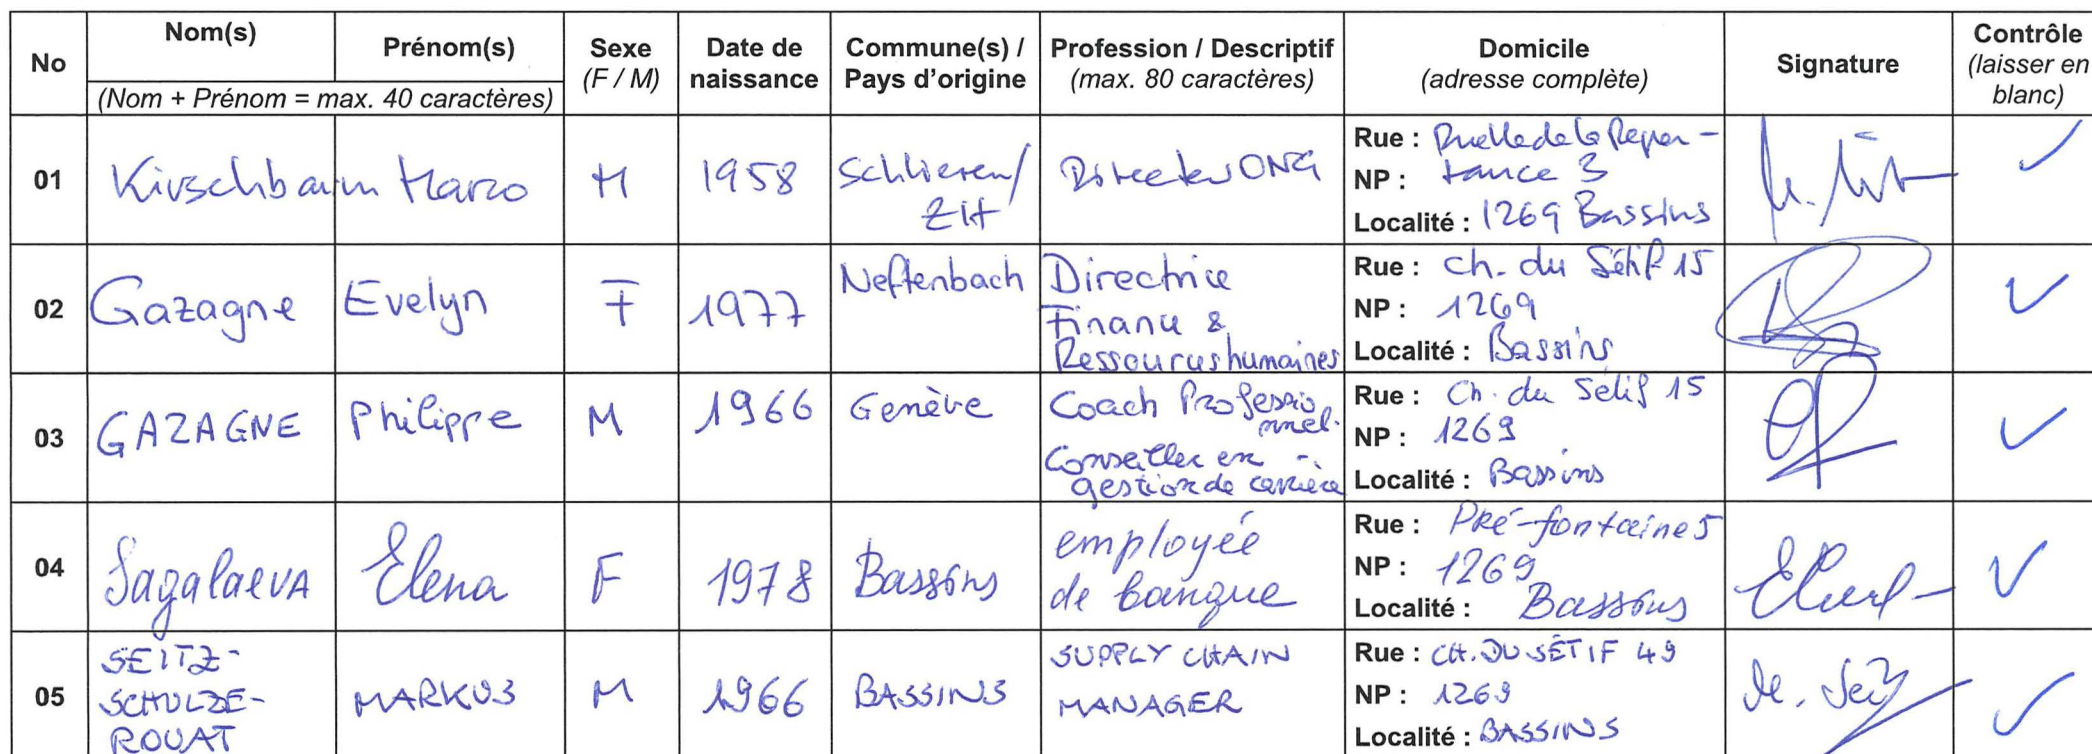 No
Nom(s)
Prénom(s)
(Nom + Prénom = max. 40 caractères)
Sexe
(F / M)
Date de
naissance
Commune(s) /
Pays d'origine
Profession / Descriptif
(max. 80 caractères)
Domicile
(adresse complète)
Signature
Contrôle
(laisser en
blanc)
01
Kirschbaum
Marzo
M
1958
Schlieren/
ZH
Directeur ONG
Rue : Ruelle de la Repen-
NP : tance 3
Localité : 1269 Bassins
02
Gazagne
Evelyn
F
1977
Neftenbach
Directrice
Finance &
Ressources humaines
Rue : Ch. du Sétif 15
NP : 1269
Localité : Bassins
03
GAZAGNE
Philippe
M
1966
Genève
Coach Professio
nnel.
Conseiller en -
gestion de carrière
Rue : Ch. du Sétif 15
NP : 1269
Localité : Bassins
04
Sagalaeva
Elena
F
1978
Bassins
employée
de banque
Rue : Pré-fontaine 5
NP : 1269
Localité : Bassins
05
SEITZ-
SCHULZE-
ROUAT
MARKUS
M
1966
BASSINS
SUPPLY CHAIN
MANAGER
Rue : CH. DU SÉTIF 49
NP : 1269
Localité : BASSINS